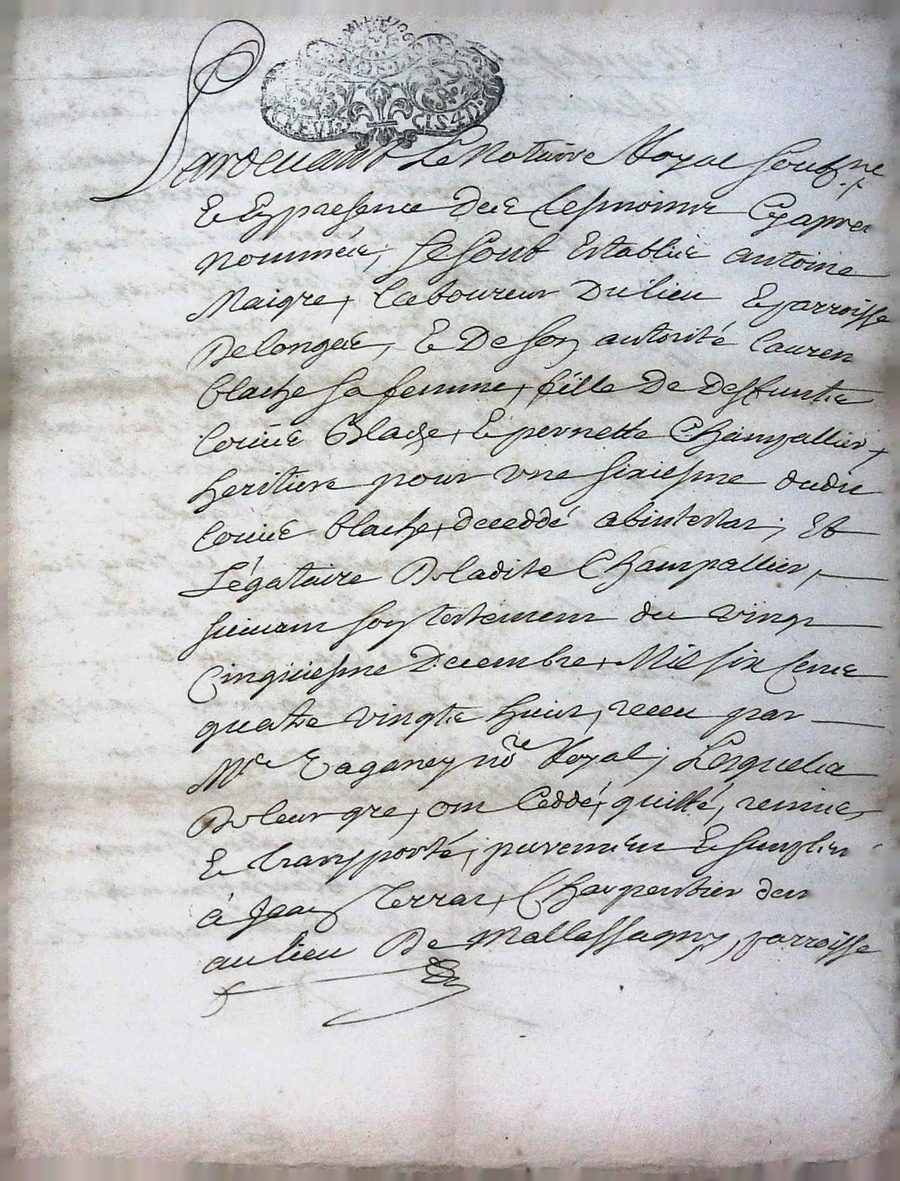 Pardeuant Le Notaire Royal Soubz.ne
Et En presence des tesmoins Cy apres
nommés, se sont Establis antoine
Maigre, laboureur du lieu & parroisse
De longes, Et De son autorité laurence
blache sa femme, fille De Deffuntz
Blache, & pernette Champallier,
heritiere pour vne sixiesme dudit
blache, deceddé abintestat; Et
Légataire De ladite Champallier,
suiuant son testament du vingt
Cinquiesme Decembre, Mil six Cens
quatre vingts huit, receu par
Me no.re Royal; Lesquels
De leur gre, ont Ceddé, quitté, remis
Et transporté, purement & simplement
à Jean Terras, Charpentier
au lieu De Mallassagny, parroisse